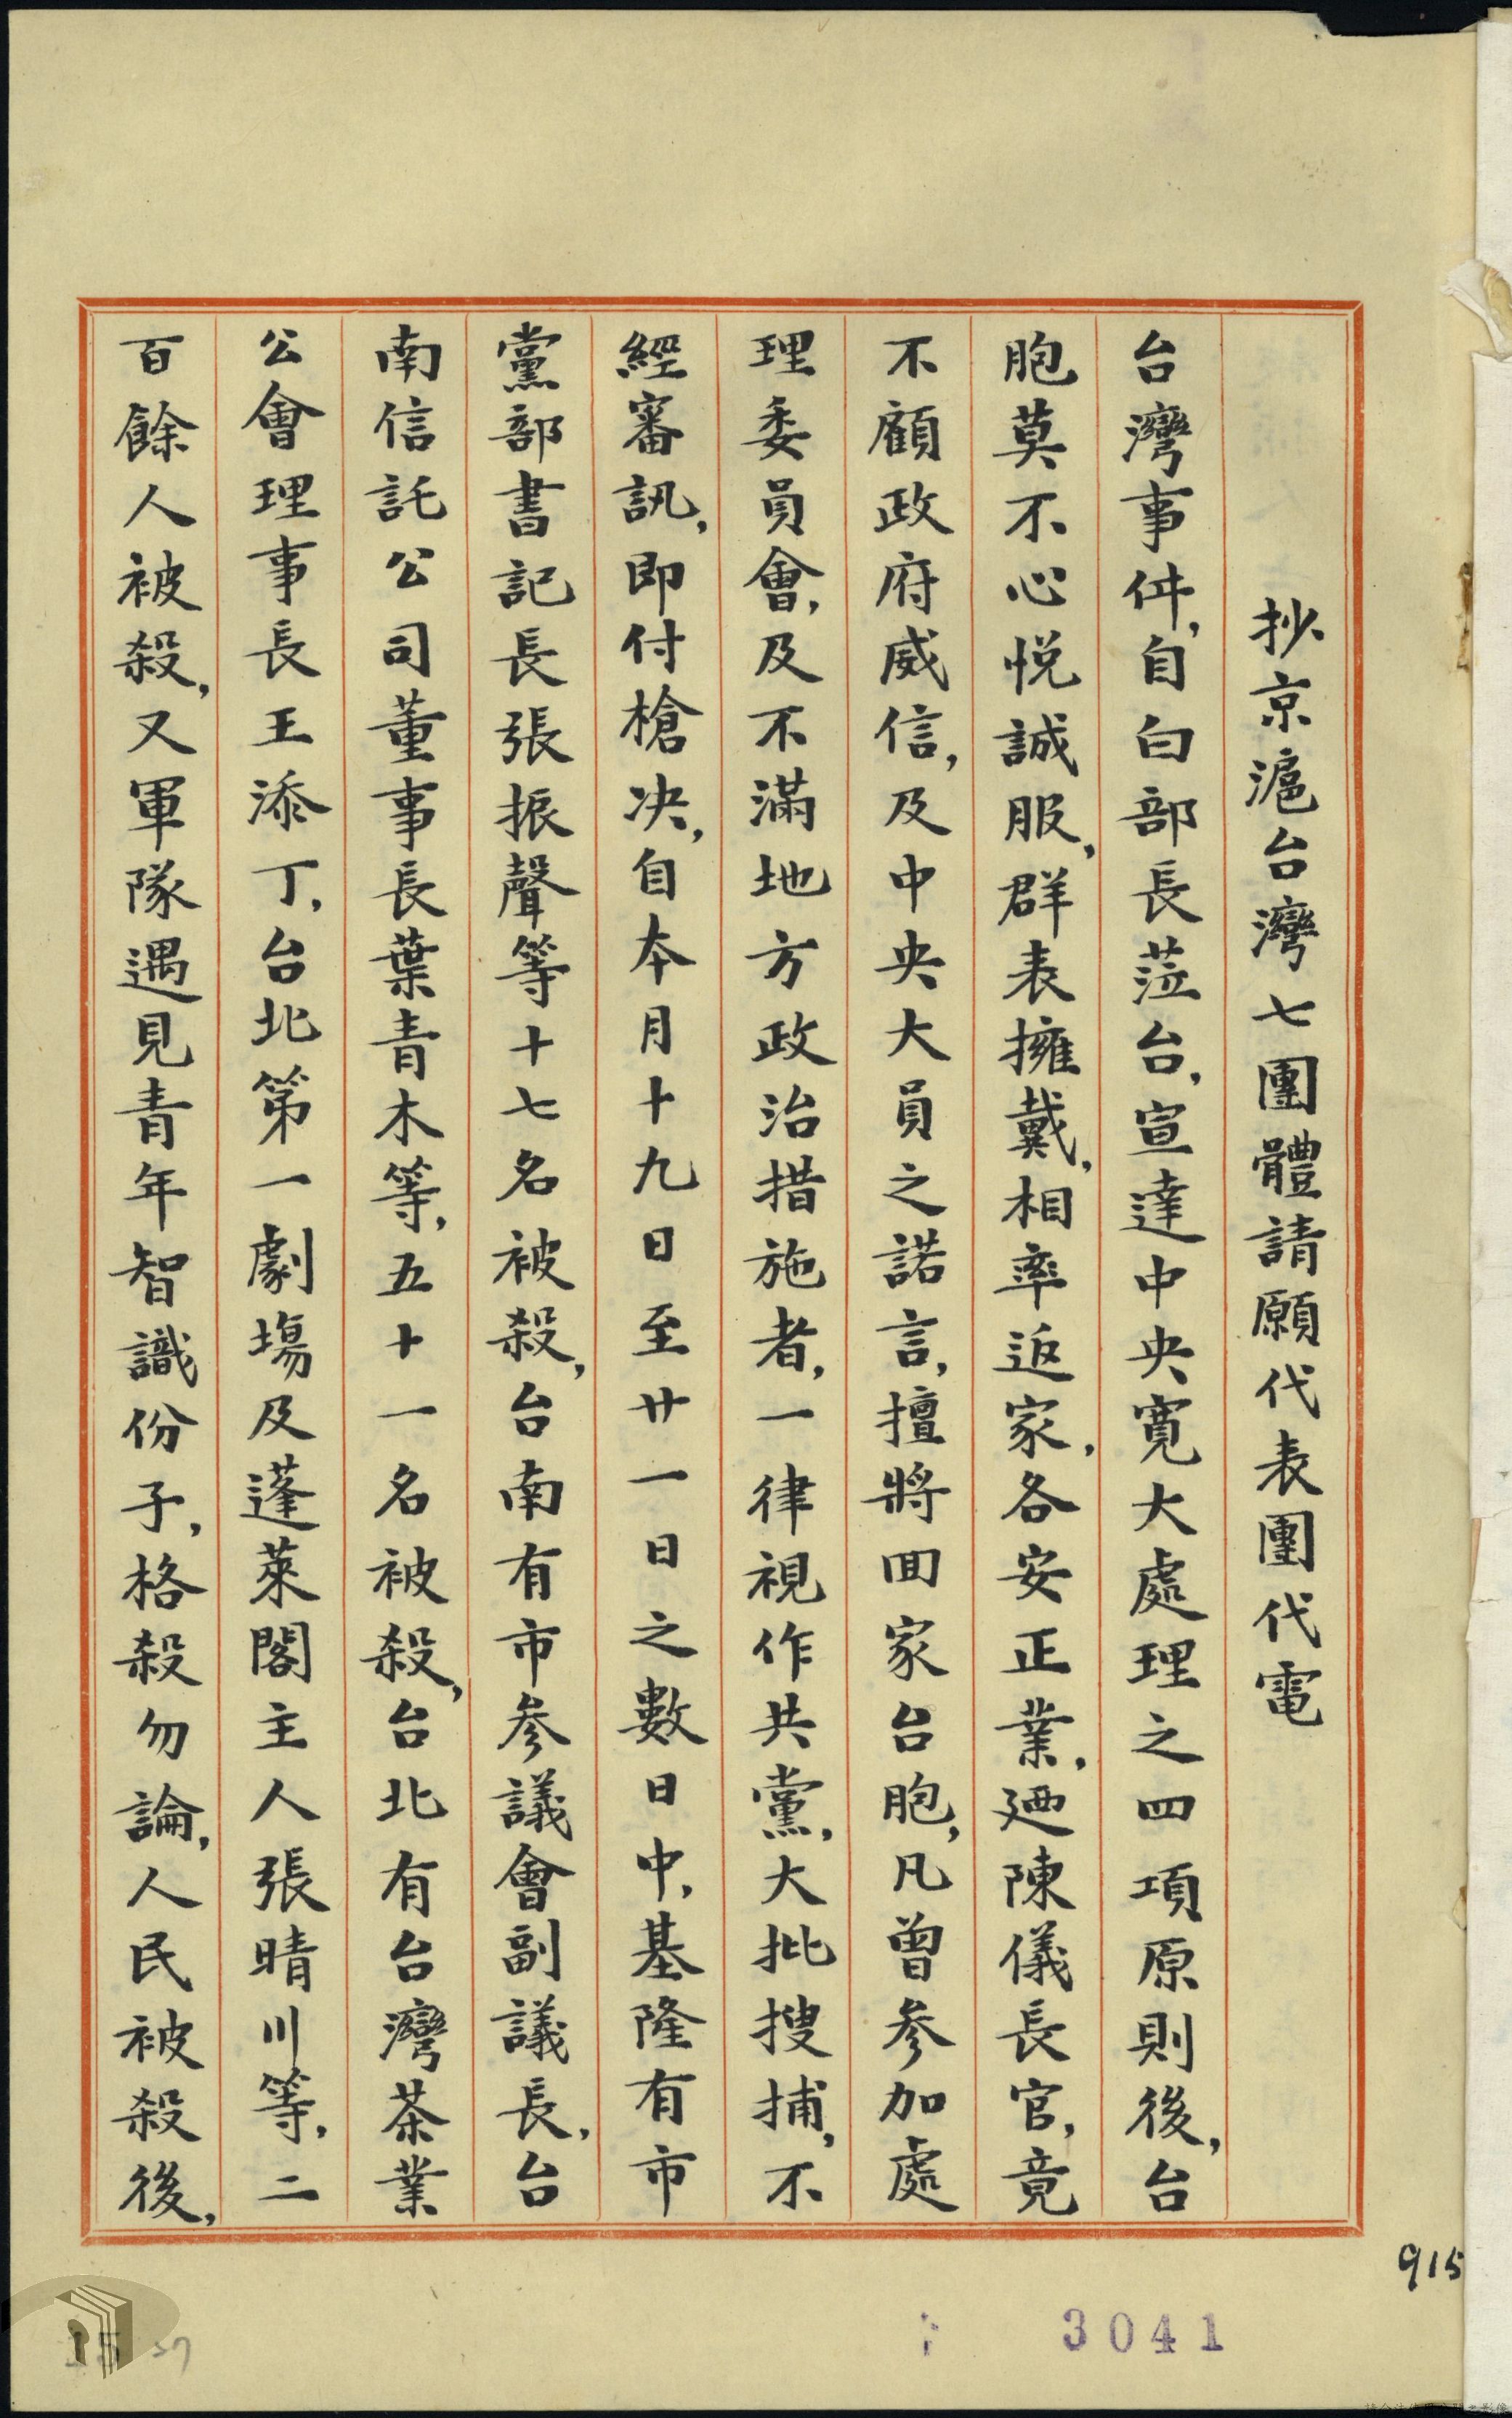 抄京滬台灣七團體請願代表團代電
台灣事件,自白部長蒞台,宣達中央寬大處理之四項原則後,台
胞莫不心悅誠服,群表擁戴,相率返家,各安正業,廼陳儀長官,竟
不顧政府威信,及中央大員之諾言,擅將回家台胞,凡曾參加處
理委員會,及不滿地方政治措施者,一律視作共黨,大批搜捕,不
經審訊,即付槍決,自本月十九日至廿一日之數日中,基隆有市
黨部書記長張振聲等十七名被殺,台南有市參議會副議長,台
南信託公司董事長葉青木等,五十一名被殺,台北有台灣茶業
公會理事長王添丁,台北第一劇場及蓬萊閣主人張晴川等,二
百餘人被殺,又軍隊遇見青年智識份子,格殺勿論,人民被殺後,
915
3041